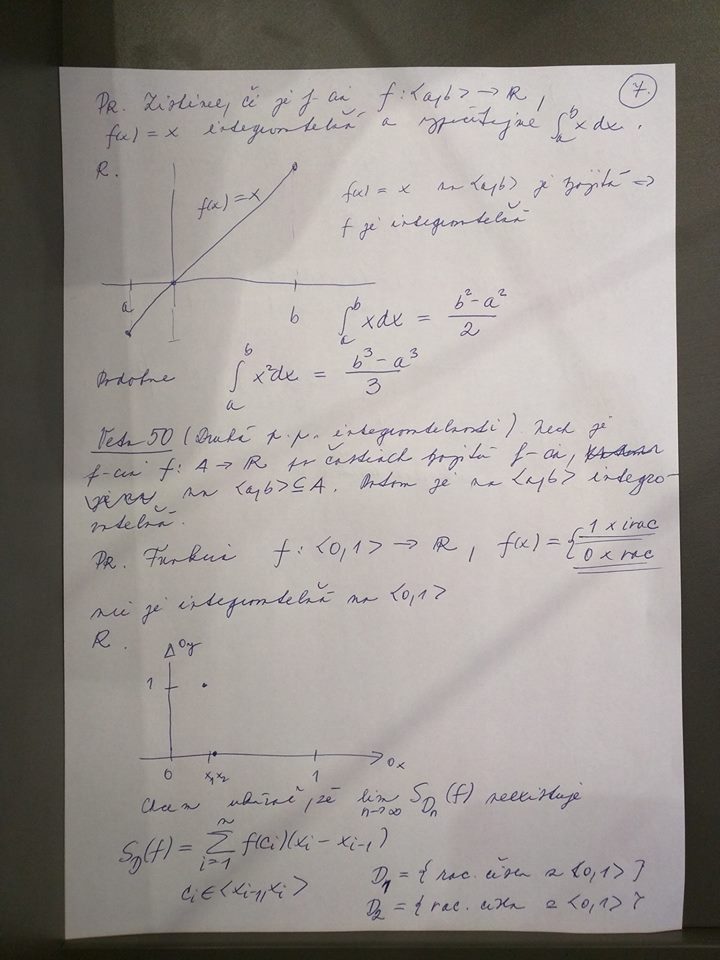 7.
PR. Zistime, či je f-cia f: <a,b> → R,
f(x) = x integrovateľná a vypočítajme ∫_a^b x dx.
R.
f(x) = x
f(x) = x na <a,b> je spojitá ⇒
f je integrovateľná
a b
∫_a^b x dx = (b² - a²)/2
Podobne ∫_a^b x² dx = (b³ - a³)/3
Veta 50 (Druhá p.p. integrovateľnosti) Nech je
f-cia f: A → R po častiach spojitá f-cia,
na <a,b> ⊆ A. Potom je na <a,b> integro-
vateľná.
PR. Funkcia f: <0,1> → R, f(x) = { 1 x irac
0 x rac
nie je integrovateľná na <0,1>
R.
oy
1
0 x₁ x₂ 1 ox
Chcem ukázať, že lim_{n→∞} S_{D_n}(f) neexistuje
S_D(f) = Σ_{i=1}^n f(c_i)(x_i - x_{i-1})
c_i ∈ <x_{i-1}, x_i>
D₁ = { rac. čísla z <0,1> }
D₂ = { rac. čísla z <0,1> }